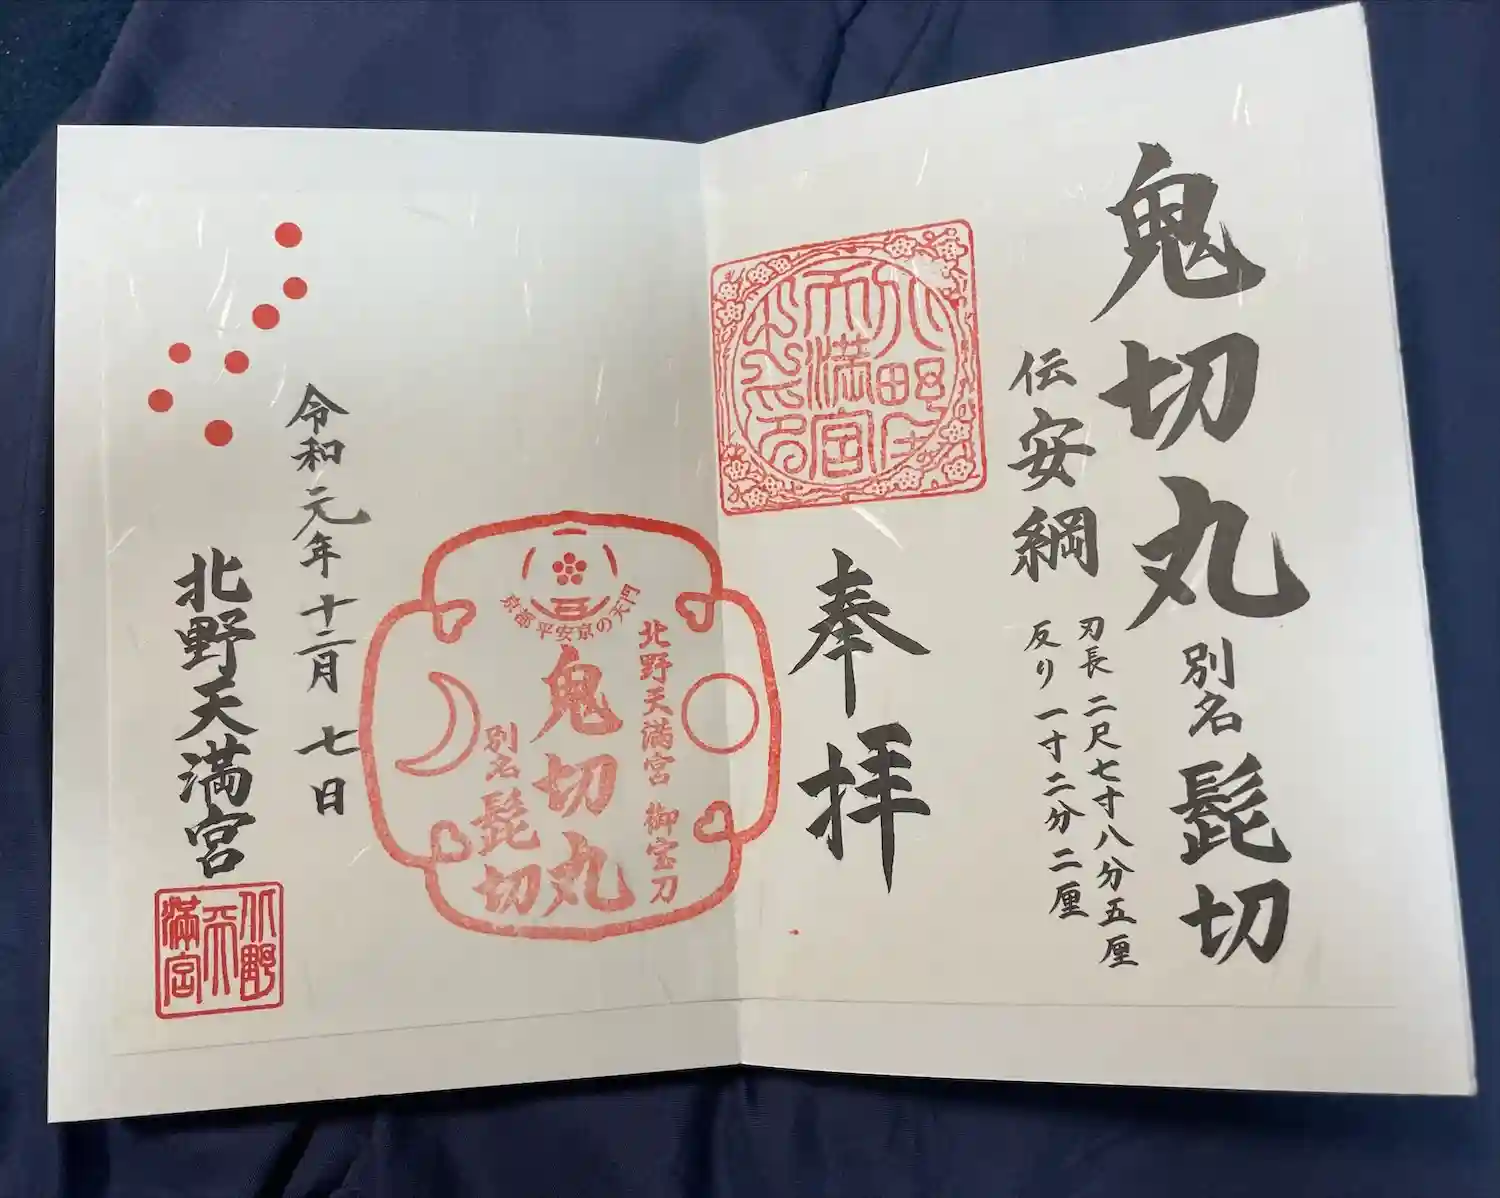 鬼切丸 別名 髭切
伝安綱
刃長 二尺七寸八分五厘
反り 一寸二分二厘
奉拝
京都 平安京の天門
北野天満宮 御宝刀
鬼切丸
別名 髭切
令和元年十二月七日
北野天満宮
北野天満宮